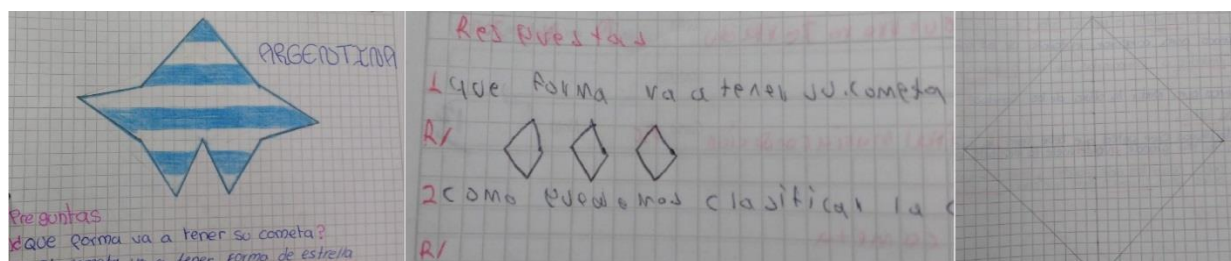 ARGENTINA
Preguntas
que forma va a tener su cometa?
forma de estrella
Respuestas
1 que forma va a tener su cometa
R/
2 como puedemos clasificar la
R/